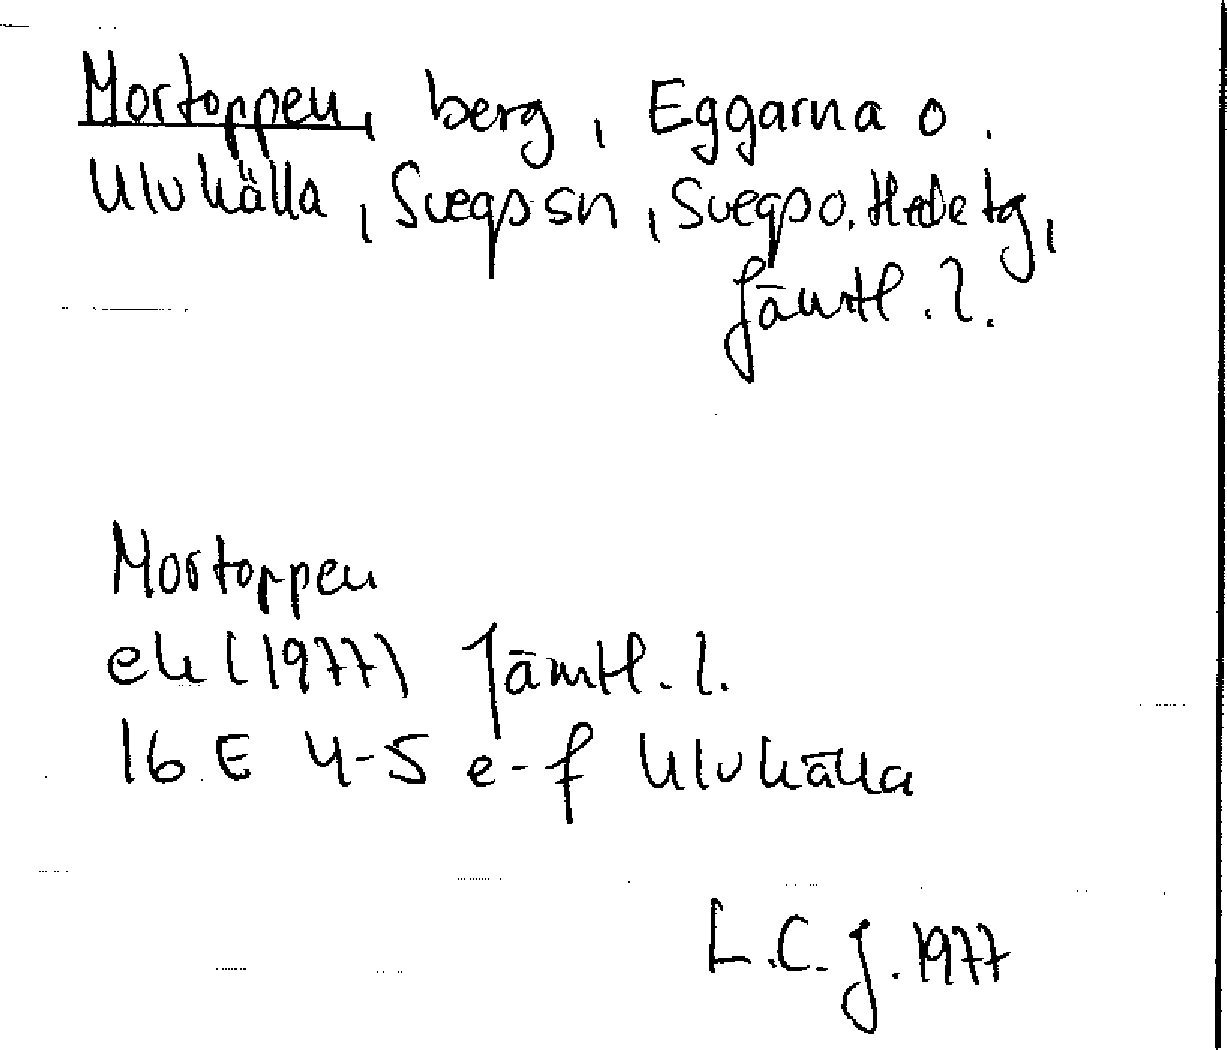 Mortoppen, berg, Eggarna o.
Ulvkälla, Svegs sn, Svegs o. Hede tg,
Jämtl. l.
Mortoppen
ek (1977) Jämtl. l.
16 E 4-5 e-f Ulvkälla
L.C.J. 1977